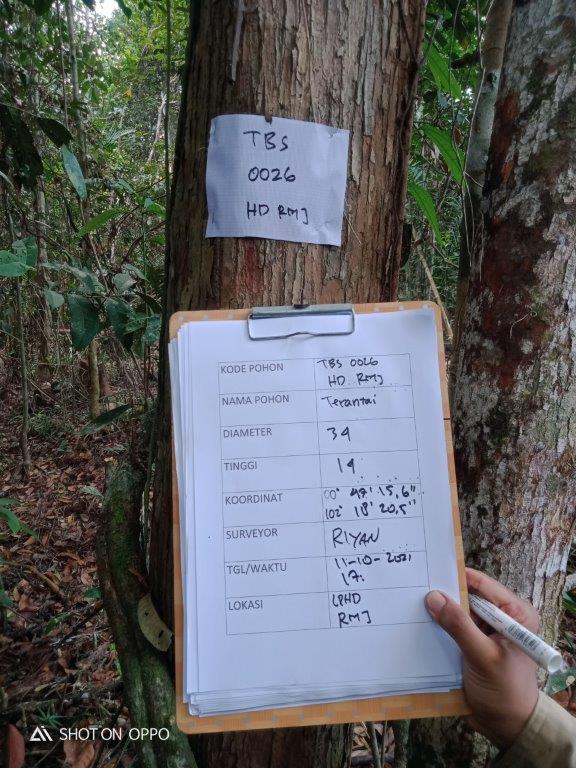 TBS
0026
HD RMJ
KODE POHON TBS 0026
HD RMJ
NAMA POHON Terantai
DIAMETER 34
TINGGI 14
KOORDINAT 00° 47' 15,6"
102° 18' 20,5"
SURVEYOR RIYAN
TGL/WAKTU 11-10-2021
17.
LOKASI LPHD
RMJ
SHOT ON OPPO